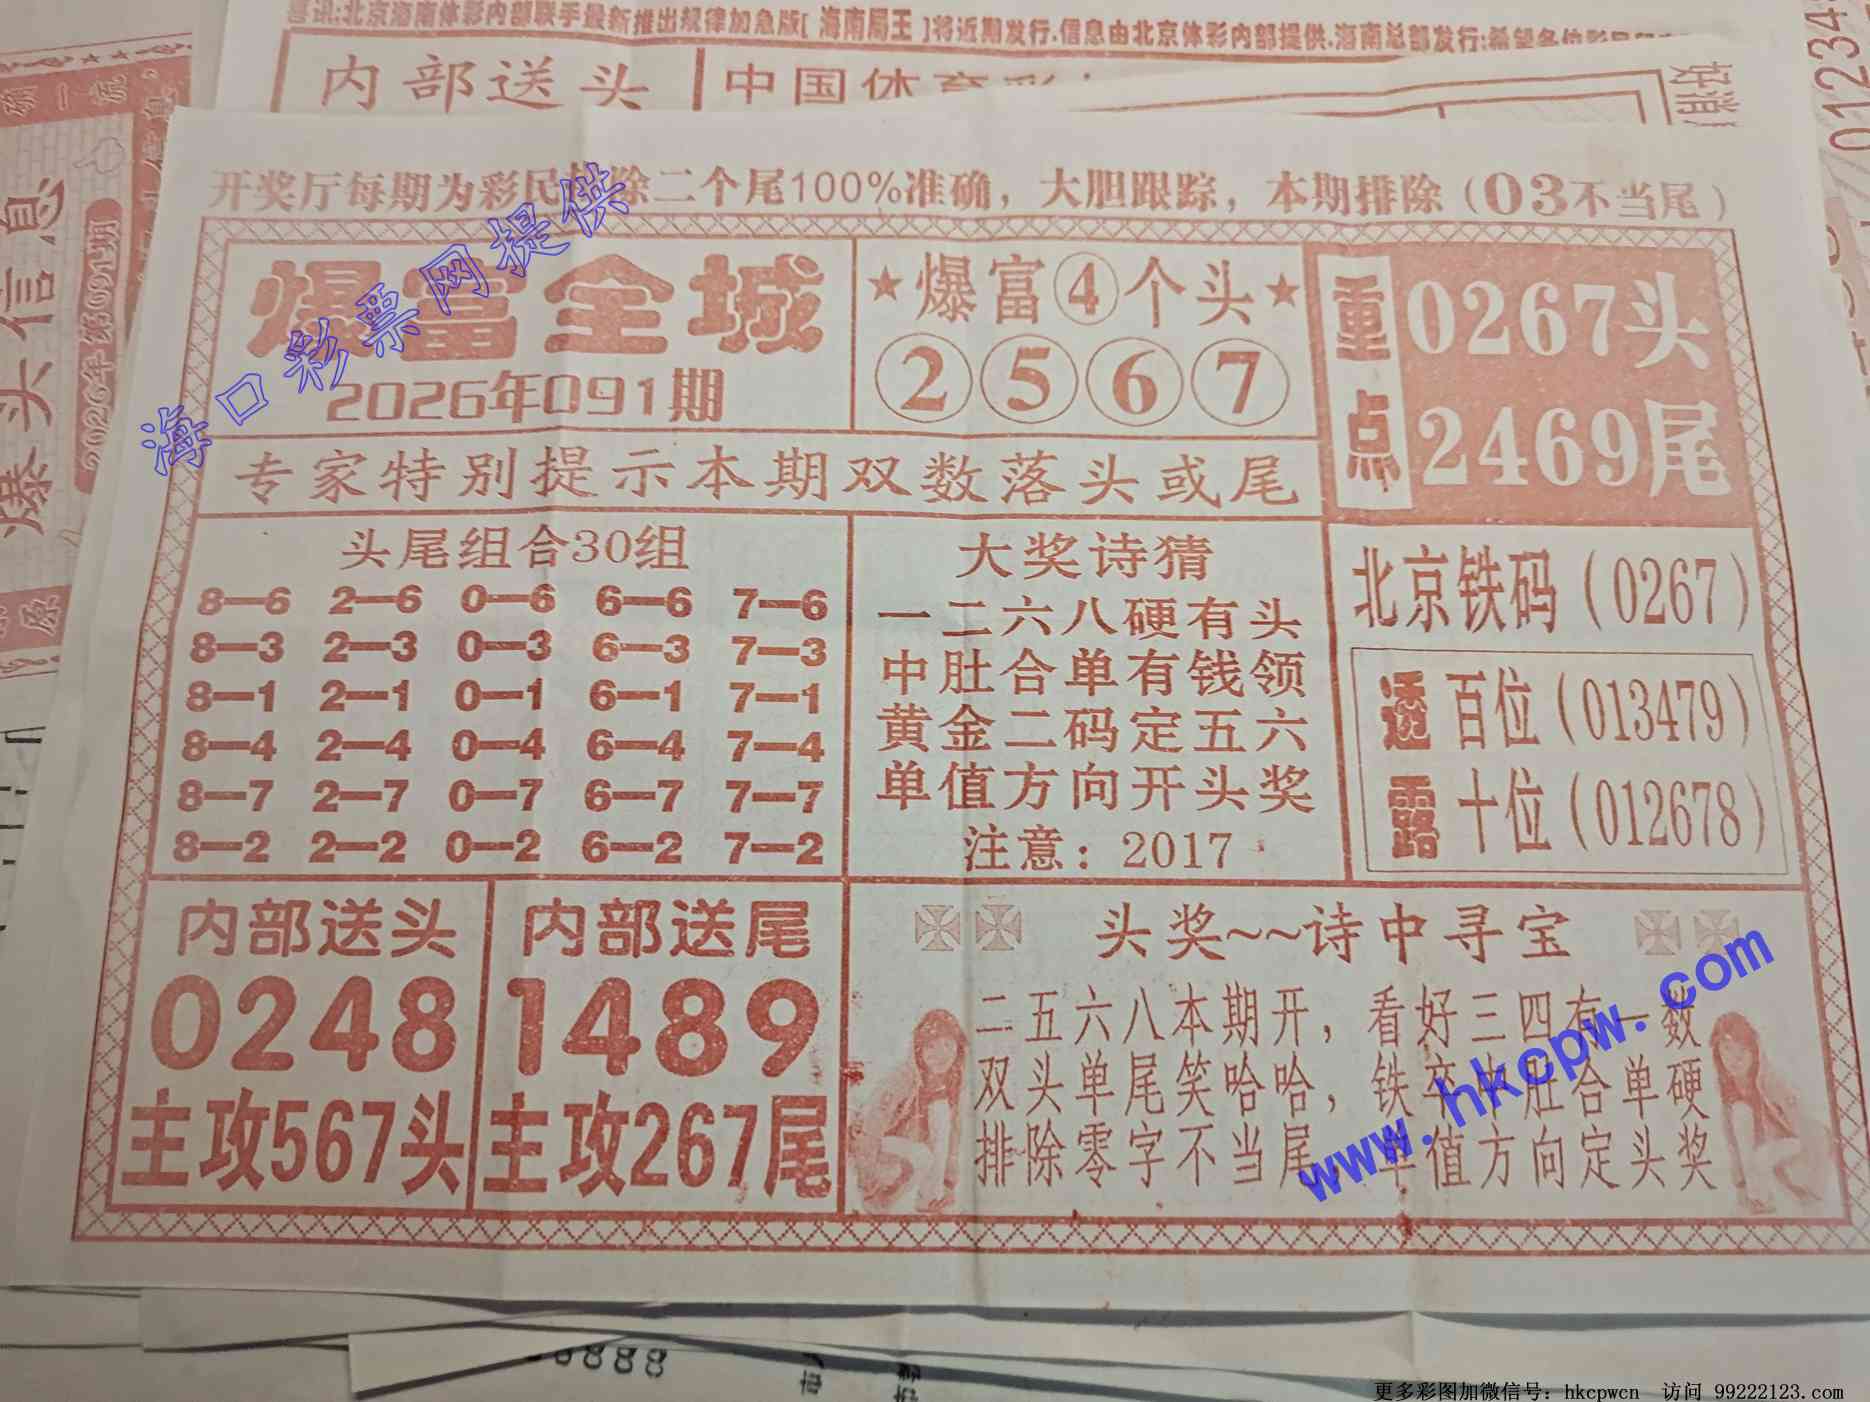 喜讯:北京海南体彩内部联手最新推出规律加急版[ 海南局王 ]将近期发行.信息由北京体彩内部提供.海南总部发行:希望各位彩民
内部送头
中国体育彩
好消
01234
爆头信息
2026年 第091期
开奖厅每期为彩民排除二个尾100%准确，大胆跟踪，本期排除（03不当尾）
爆富全城
2026年091期
★爆富④个头★
②⑤⑥⑦
重点
0267头
2469尾
专家特别提示本期双数落头或尾
头尾组合30组
8—6 2—6 0—6 6—6 7—6
8—3 2—3 0—3 6—3 7—3
8—1 2—1 0—1 6—1 7—1
8—4 2—4 0—4 6—4 7—4
8—7 2—7 0—7 6—7 7—7
8—2 2—2 0—2 6—2 7—2
大奖诗猜
一二六八硬有头
中肚合单有钱领
黄金二码定五六
单值方向开头奖
注意：2017
北京铁码（0267）
透露
百位（013479）
十位（012678）
内部送头
0248
主攻567头
内部送尾
1489
主攻267尾
头奖~~诗中寻宝
二五六八本期开，看好三四有一数
双头单尾笑哈哈，铁卒中肚合单硬
排除零字不当尾，单值方向定头奖
海口彩票网提供
www.hkcpw.com
8888
更多彩图加微信号：hkcpwcn 访问 99222123.com